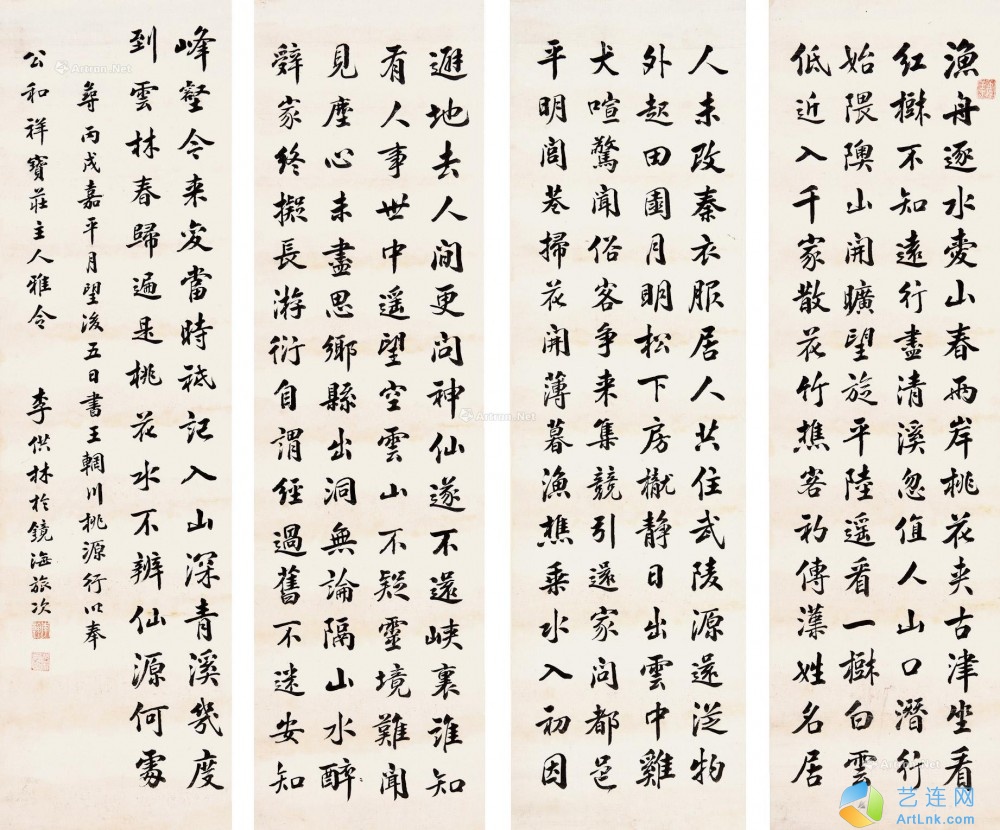 漁舟逐水愛山春兩岸桃花夹古津坐看
红樹不知遠行盡清溪忽值人山口潛行
始隈隩山開曠望旋平陸遥看一樹白雲
低近入千家散花竹樵客初傳漢姓名居
人未改秦衣服居人共住武陵源還從物
外起田園月明松下房櫳静日出雲中雞
犬喧驚聞俗客争来集競引還家問都邑
平明閭巷掃花開薄暮漁樵乘水入初因
避地去人間更问神仙遂不還峡裏誰知
有人事世中遥望空雲山不疑靈境難聞
見塵心未盡思鄉縣出洞無論隔山水醉
辭家終擬長游衍自謂經過舊不迷安知
峰壑今来变當時祗記入山深青溪幾度
到雲林春歸遍是桃花水不辨仙源何處
尋丙戌嘉平月望後五日書王輞川桃源行以奉
公和祥寶莊主人雅令
李供林於鏡海旅次
Artron.Net
Artron.Net
Artron.Net
Artron.Net
艺连网
ArtLnk.com